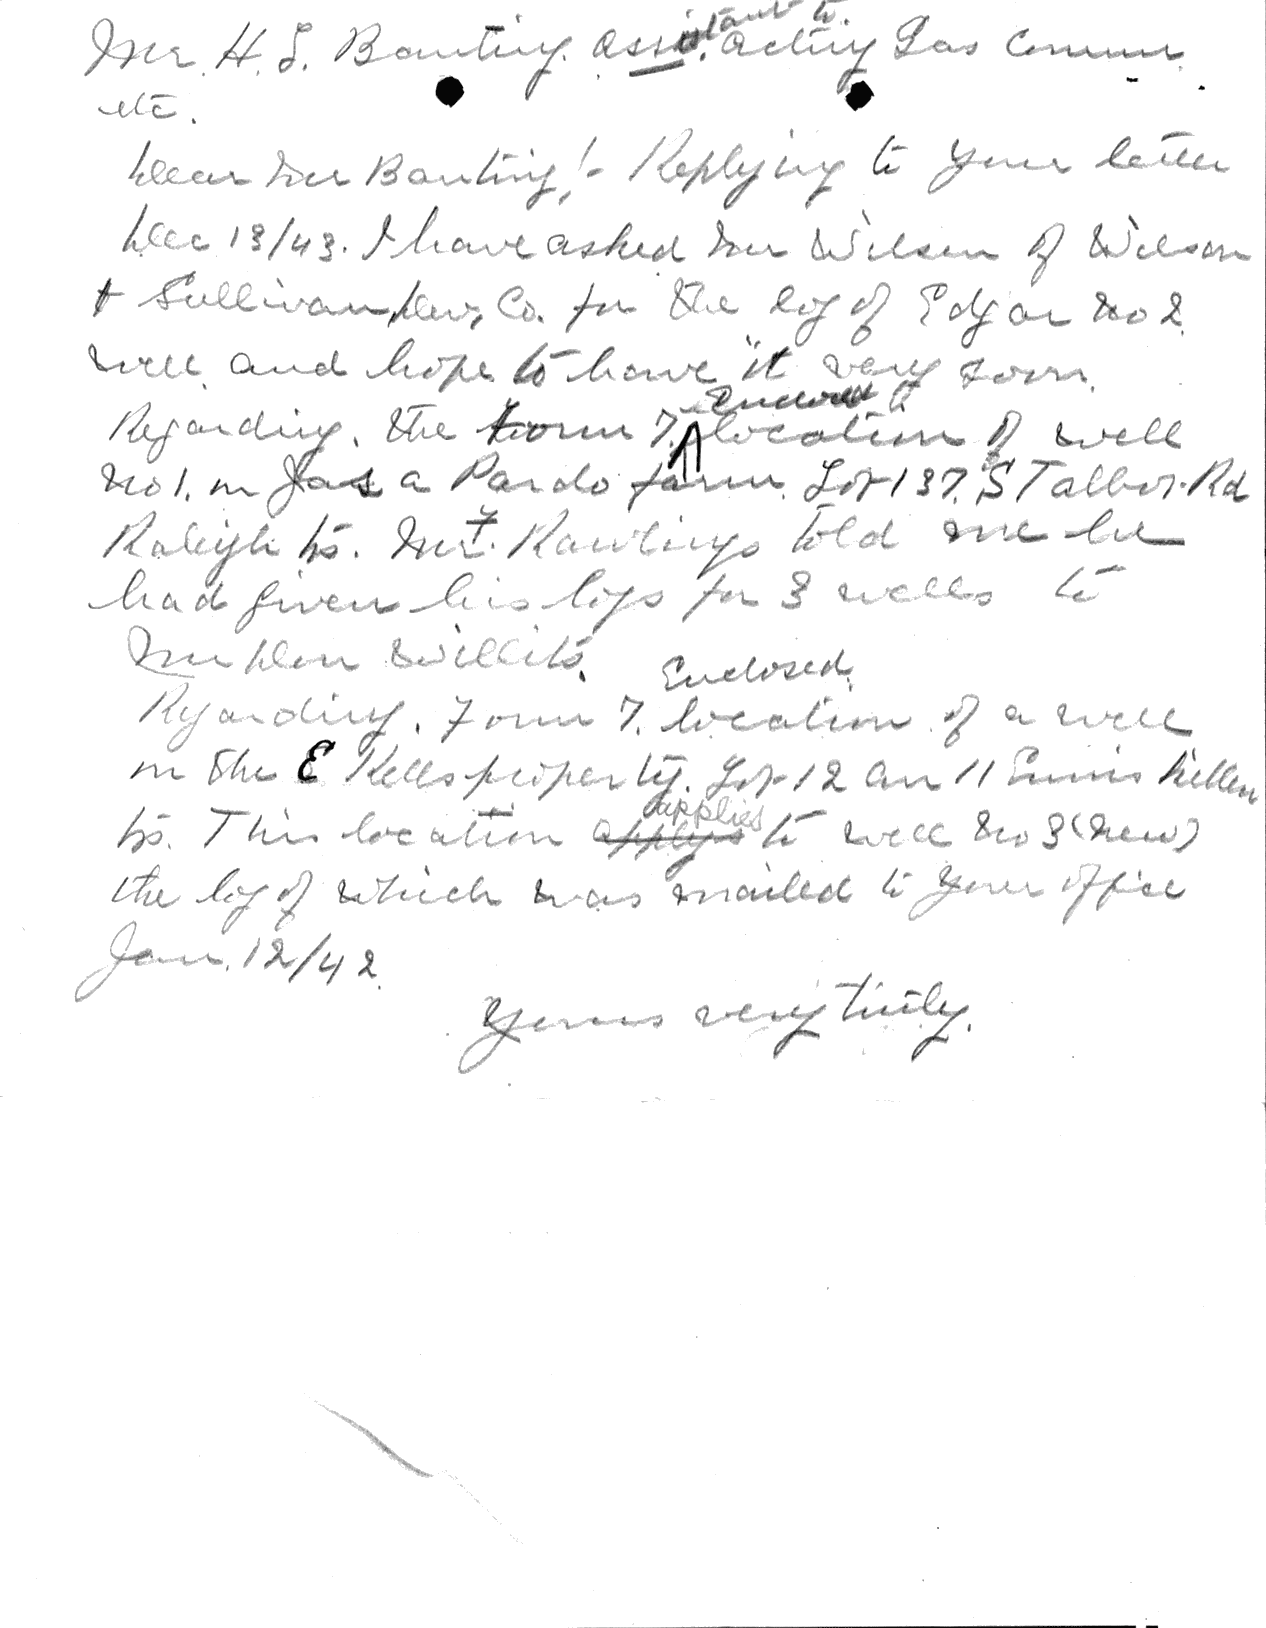 Mr. H. S. Banting. Assistant to. Acting Gas Comm.
etc.
Dear Mr Banting!- Replying to your letter
Dec 13/43. I have asked Mr Wilson of Wilson
+ Sullivan, Dev, Co. for the log of Edgar No 2
well and hope to have it very soon.
Enclosed
Regarding. the Form 7. location of well
No 1. on Jas a Pardo farm. Lot 137. S Talbot Rd
Raleigh tp. Mr. Rawlings told me he
had given his logs for 3 wells to
Mr Don Willits.
Enclosed.
Regarding. Form 7. location of a well
on the E Kells property. Lot 12 Con 11 Ennis Killen
applies
tp. This location applys to well No 3 (New)
the log of which was mailed to your office
Jan. 12/42.
Yours very truly.